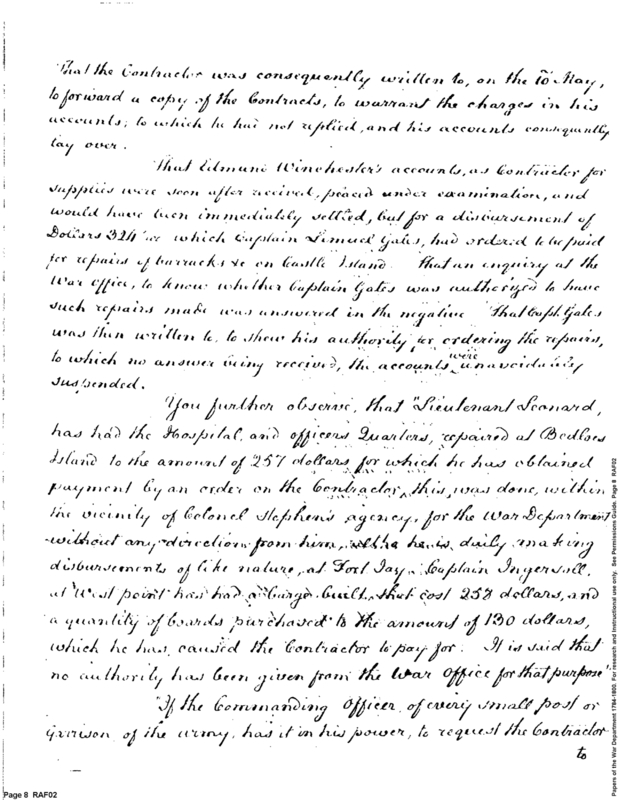 That the Contractor was consequently written to, on the 10 May,
to forward a copy of the Contracts, to warrant the charges in his
accounts; to which he had not replied, and his accounts consequently
lay over.
That Edmund Winchester's accounts, as Contractor for
supplies were soon after received, placed under examination, and
would have been immediately settled, but for a disbursement of
Dollars 324 which Captain Lemuel Gates, had ordered to be paid
for repairs of barracks &c on Castle Island. That an enquiry at the
War office, to know whether Captain Gates was authorized to have
such repairs made was answered in the negative That Capt. Gates
was then written to, to shew his authority for ordering the repairs,
to which no answer being received, the accounts were unavoidably
suspended.
You further observe, that "Lieutenant Leonard,
has had the Hospital, and officers Quarters, repaired at Bedloes
Island to the amount of 257 dollars, for which he has obtained
payment by an order on the Contractor, this, was done, within
the vicinity of Colonel Stephen's agency, for the War Department
without any direction from him, he is daily making
disbursements of like nature, at Fort Jay. Captain Ingersoll,
at West point has had a barge built, that cost 258 dollars, and
a quantity of boards purchased to the amount of 130 dollars,
which he has caused the Contractor to pay for. It is said that
no authority has been given from the War Office for that purpose"
"If the Commanding Officer of every small post or
Garrison of the army, has it in his power, to request the Contractor
to
Page 8 RAF02
Papers of the War Department 1784-1800. For research and instructional use only. See Permissions Guide. Page 8 RAF02